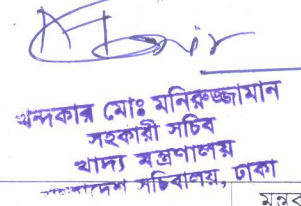 খন্দকার মোঃ মনিরুজ্জামান
সহকারী সচিব
খাদ্য মন্ত্রণালয়
সচিবালয়, ঢাকা